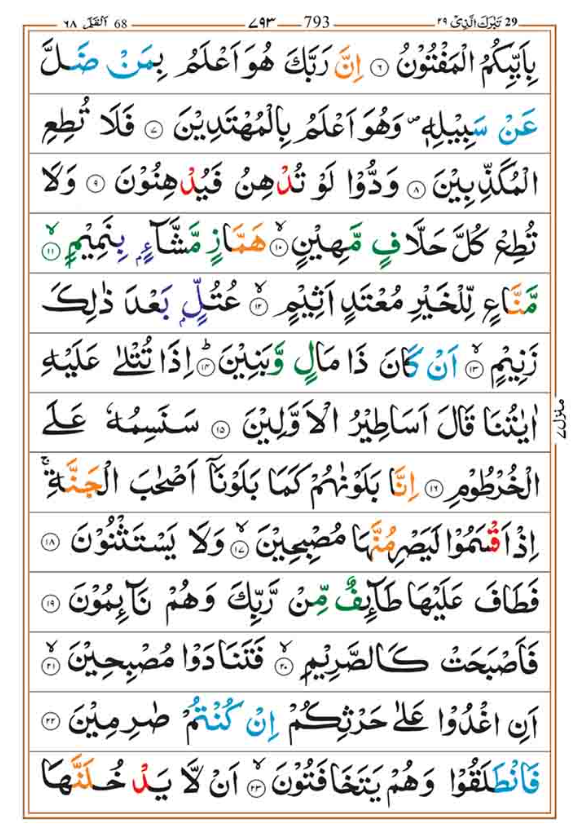 29 تبٰرك الذي ٢٩ 793 ٧٩٣ 68 القلم ٦٨
بِاَىِّيكُمُ الْمَفْتُوْنُ ۝٦ اِنَّ رَبَّكَ هُوَ اَعْلَمُ بِمَنْ ضَلَّ
عَنْ سَبِيْلِهٖ ۪ وَهُوَ اَعْلَمُ بِالْمُهْتَدِيْنَ ۝٧ فَلَا تُطِعِ
الْمُكَذِّبِيْنَ ۝٨ وَدُّوْا لَوْ تُدْهِنُ فَيُدْهِنُوْنَ ۝٩ وَلَا
تُطِعْ كُلَّ حَلَّافٍ مَّهِيْنٍ ۙ‏۝١٠ هَمَّازٍ مَّشَّآءٍۭ بِنَمِيْمٍ ۙ‏۝١١
مَّنَّاعٍ لِّلْخَيْرِ مُعْتَدٍ اَثِيْمٍ ۙ‏۝١٢ عُتُلٍّۭ بَعْدَ ذٰلِكَ
زَنِيْمٍ ۙ‏۝١٣ اَنْ كَانَ ذَا مَالٍ وَّبَنِيْنَ ؕ‏۝١٤ اِذَا تُتْلٰى عَلَيْهِ
اٰيٰتُنَا قَالَ اَسَاطِيْرُ الْاَوَّلِيْنَ ۝١٥ سَنَسِمُهٗ عَلَى
الْخُرْطُوْمِ ۝١٦ اِنَّا بَلَوْنٰهُمْ كَمَا بَلَوْنَاۤ اَصْحٰبَ الْجَنَّةِ ۚ
اِذْ اَقْسَمُوْا لَيَصْرِمُنَّهَا مُصْبِحِيْنَ ۙ‏۝١٧ وَلَا يَسْتَثْنُوْنَ ۝١٨
فَطَافَ عَلَيْهَا طَآئِفٌ مِّنْ رَّبِّكَ وَهُمْ نَآئِمُوْنَ ۝١٩
فَاَصْبَحَتْ كَالصَّرِيْمِ ۙ‏۝٢٠ فَتَنَادَوْا مُصْبِحِيْنَ ۙ‏۝٢١
اَنِ اغْدُوْا عَلٰى حَرْثِكُمْ اِنْ كُنْتُمْ صٰرِمِيْنَ ۝٢٢
فَانْطَلَقُوْا وَهُمْ يَتَخَافَتُوْنَ ۙ‏۝٢٣ اَنْ لَّا يَدْخُلَنَّهَا
منزل ٧